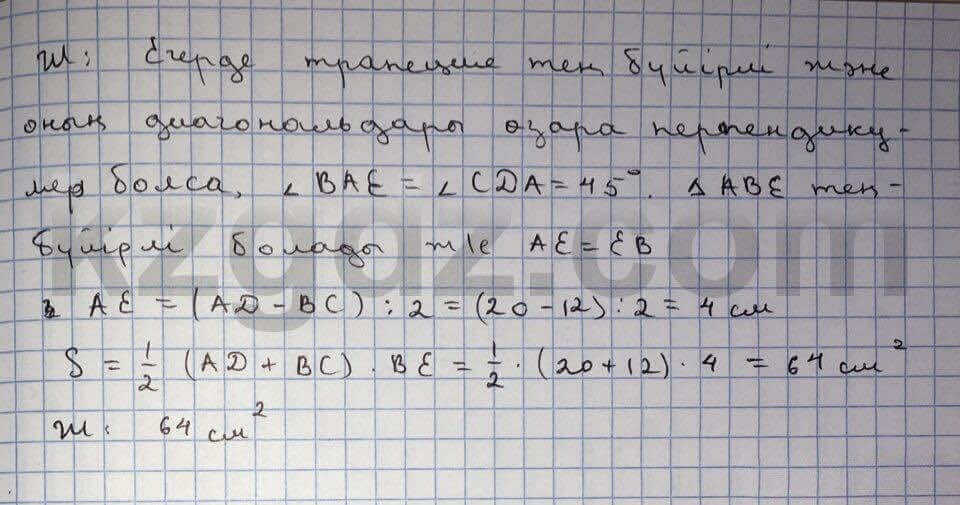 Ш: Егерде трапеция тең бүйірлі және
оның диагональдары өзара перпендику-
ляр болса, ∠BAE = ∠CDA = 45°. △ABE тең-
бүйірлі болады т/е AE = EB
AE = (AD - BC) : 2 = (20 - 12) : 2 = 4 см
S = 1/2 (AD + BC) · BE = 1/2 · (20 + 12) · 4 = 64 см²
Ж: 64 см²
kzgdz.com